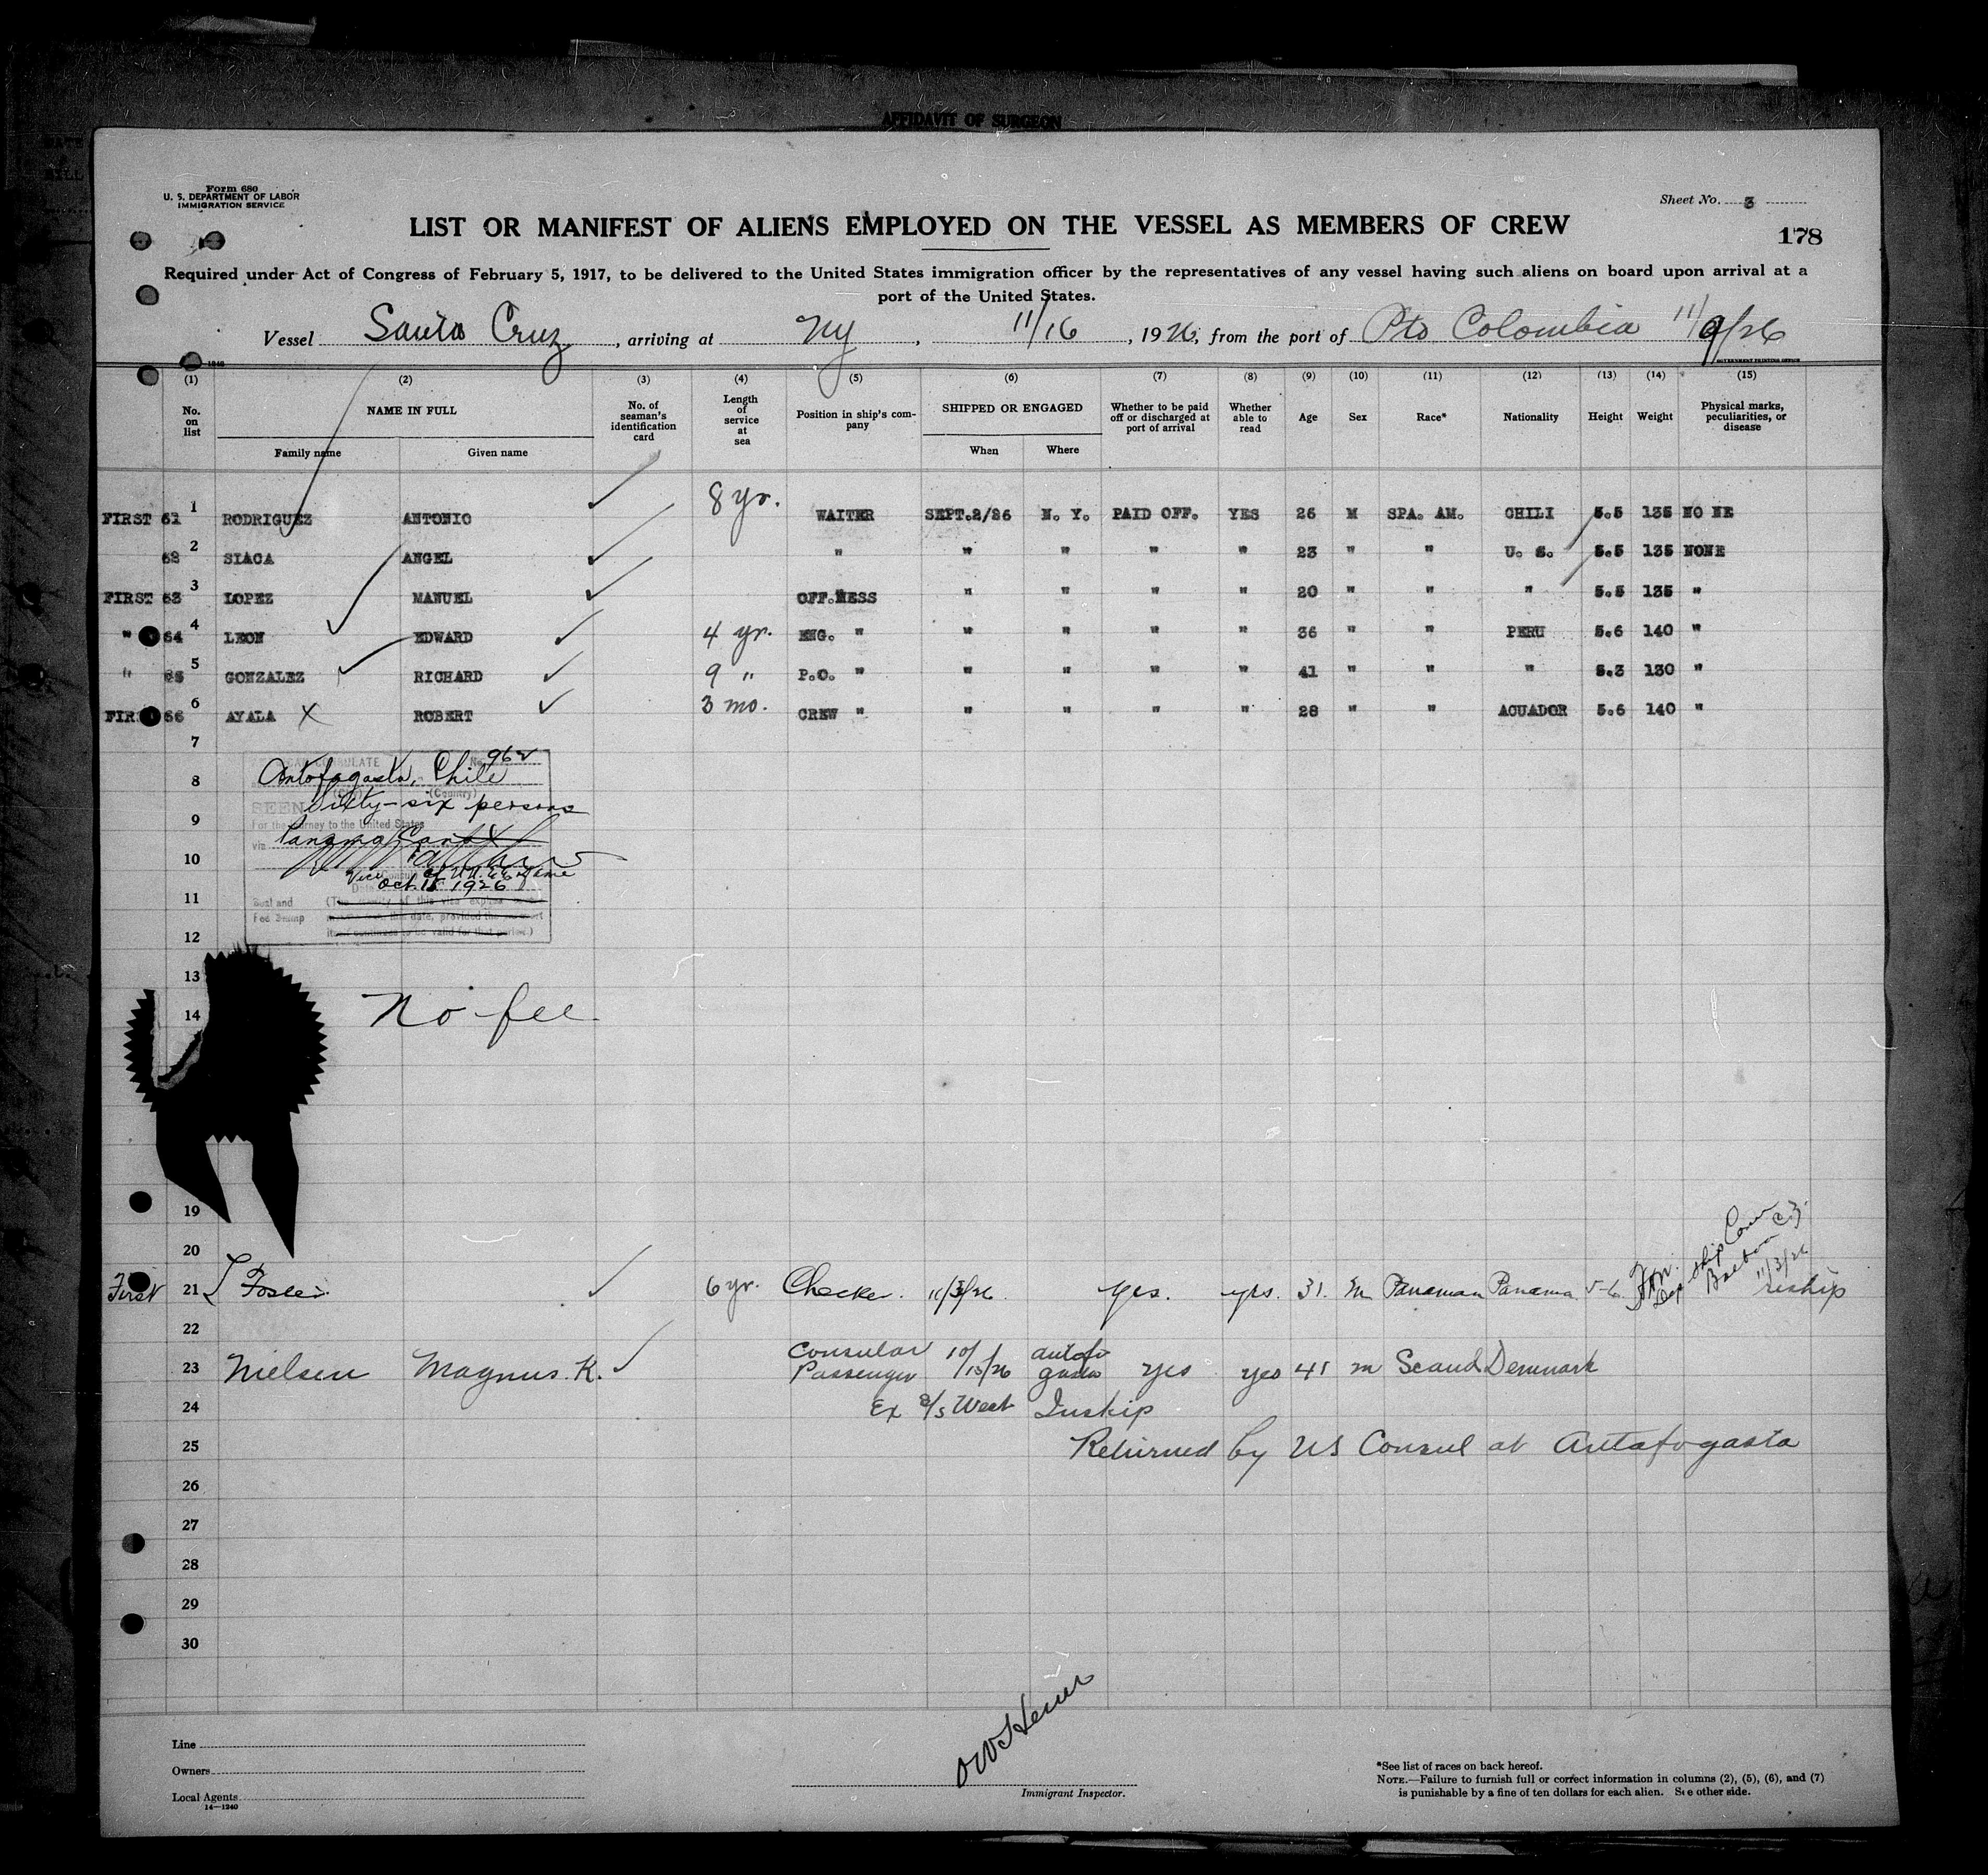 AFFIDAVIT OF SURGEON
Form 680
U. S. DEPARTMENT OF LABOR
IMMIGRATION SERVICE
Sheet No. 3
LIST OR MANIFEST OF ALIENS EMPLOYED ON THE VESSEL AS MEMBERS OF CREW
178
Required under Act of Congress of February 5, 1917, to be delivered to the United States immigration officer by the representatives of any vessel having such aliens on board upon arrival at a
port of the United States.
Vessel Santa Cruz, arriving at NY, 11/16, 1926, from the port of Pto Colombia 11/9/26
GOVERNMENT PRINTING OFFICE
(1) (2) (3) (4) (5) (6) (7) (8) (9) (10) (11) (12) (13) (14) (15)
No. on list NAME IN FULL Family name Given name No. of seaman's identification card Length of service at sea Position in ship's company SHIPPED OR ENGAGED When Where Whether to be paid off or discharged at port of arrival Whether able to read Age Sex Race* Nationality Height Weight Physical marks, peculiarities, or disease
FIRST 61 1 RODRIGUEZ ANTONIO 8 yr. WAITER SEPT.2/26 N. Y. PAID OFF. YES 26 M SPA. AM. CHILI 5.5 135 NO NE
62 2 SIACA ANGEL " " " " " 23 " " U. S. 5.5 135 NONE
FIRST 63 3 LOPEZ MANUEL OFF.MESS " " " " 20 " " " 5.5 135 "
" 64 4 LEON EDWARD 4 yr. ENG. " " " " " 36 " " PERU 5.6 140 "
" 65 5 GONZALEZ RICHARD 9 " P.O. " " " " " 41 " " " 5.3 130 "
FIRST 66 6 AYALA X ROBERT 3 mo. CREW " " " " " 28 " " ACUADOR 5.6 140 "
7
8
9
10
11
12
13
14
CONSULATE No. 962
Antofagasta, Chile
(Country)
SEEN Sixty-six persons
For the journey to the United States
via Panama Canal
Vice Consul of U.S. of Ame
Oct. 15 1926
Seal and (The validity of this visa expires
Fee Stamp this date, provided the passport
itself continues to be valid for that period.)
No fee
19
20
First 21 Foster 6 yr. Checker. 11/3/26 yes. yes. 31. m Panaman Panama 5-6
Ship Com
Balboa C.Z.
11/3/26
reship
22
23 Nielsen Magnus. K. Consular Passenger 10/15/26 antofogasta yes yes 41 m Scand Denmark
24 Ex S/S West Inskip
25 Returned by US Consul at Antafogasta
26
27
28
29
30
Line
Owners
Local Agents
14—1240
Immigrant Inspector.
*See list of races on back hereof.
NOTE.—Failure to furnish full or correct information in columns (2), (5), (6), and (7)
is punishable by a fine of ten dollars for each alien. See other side.